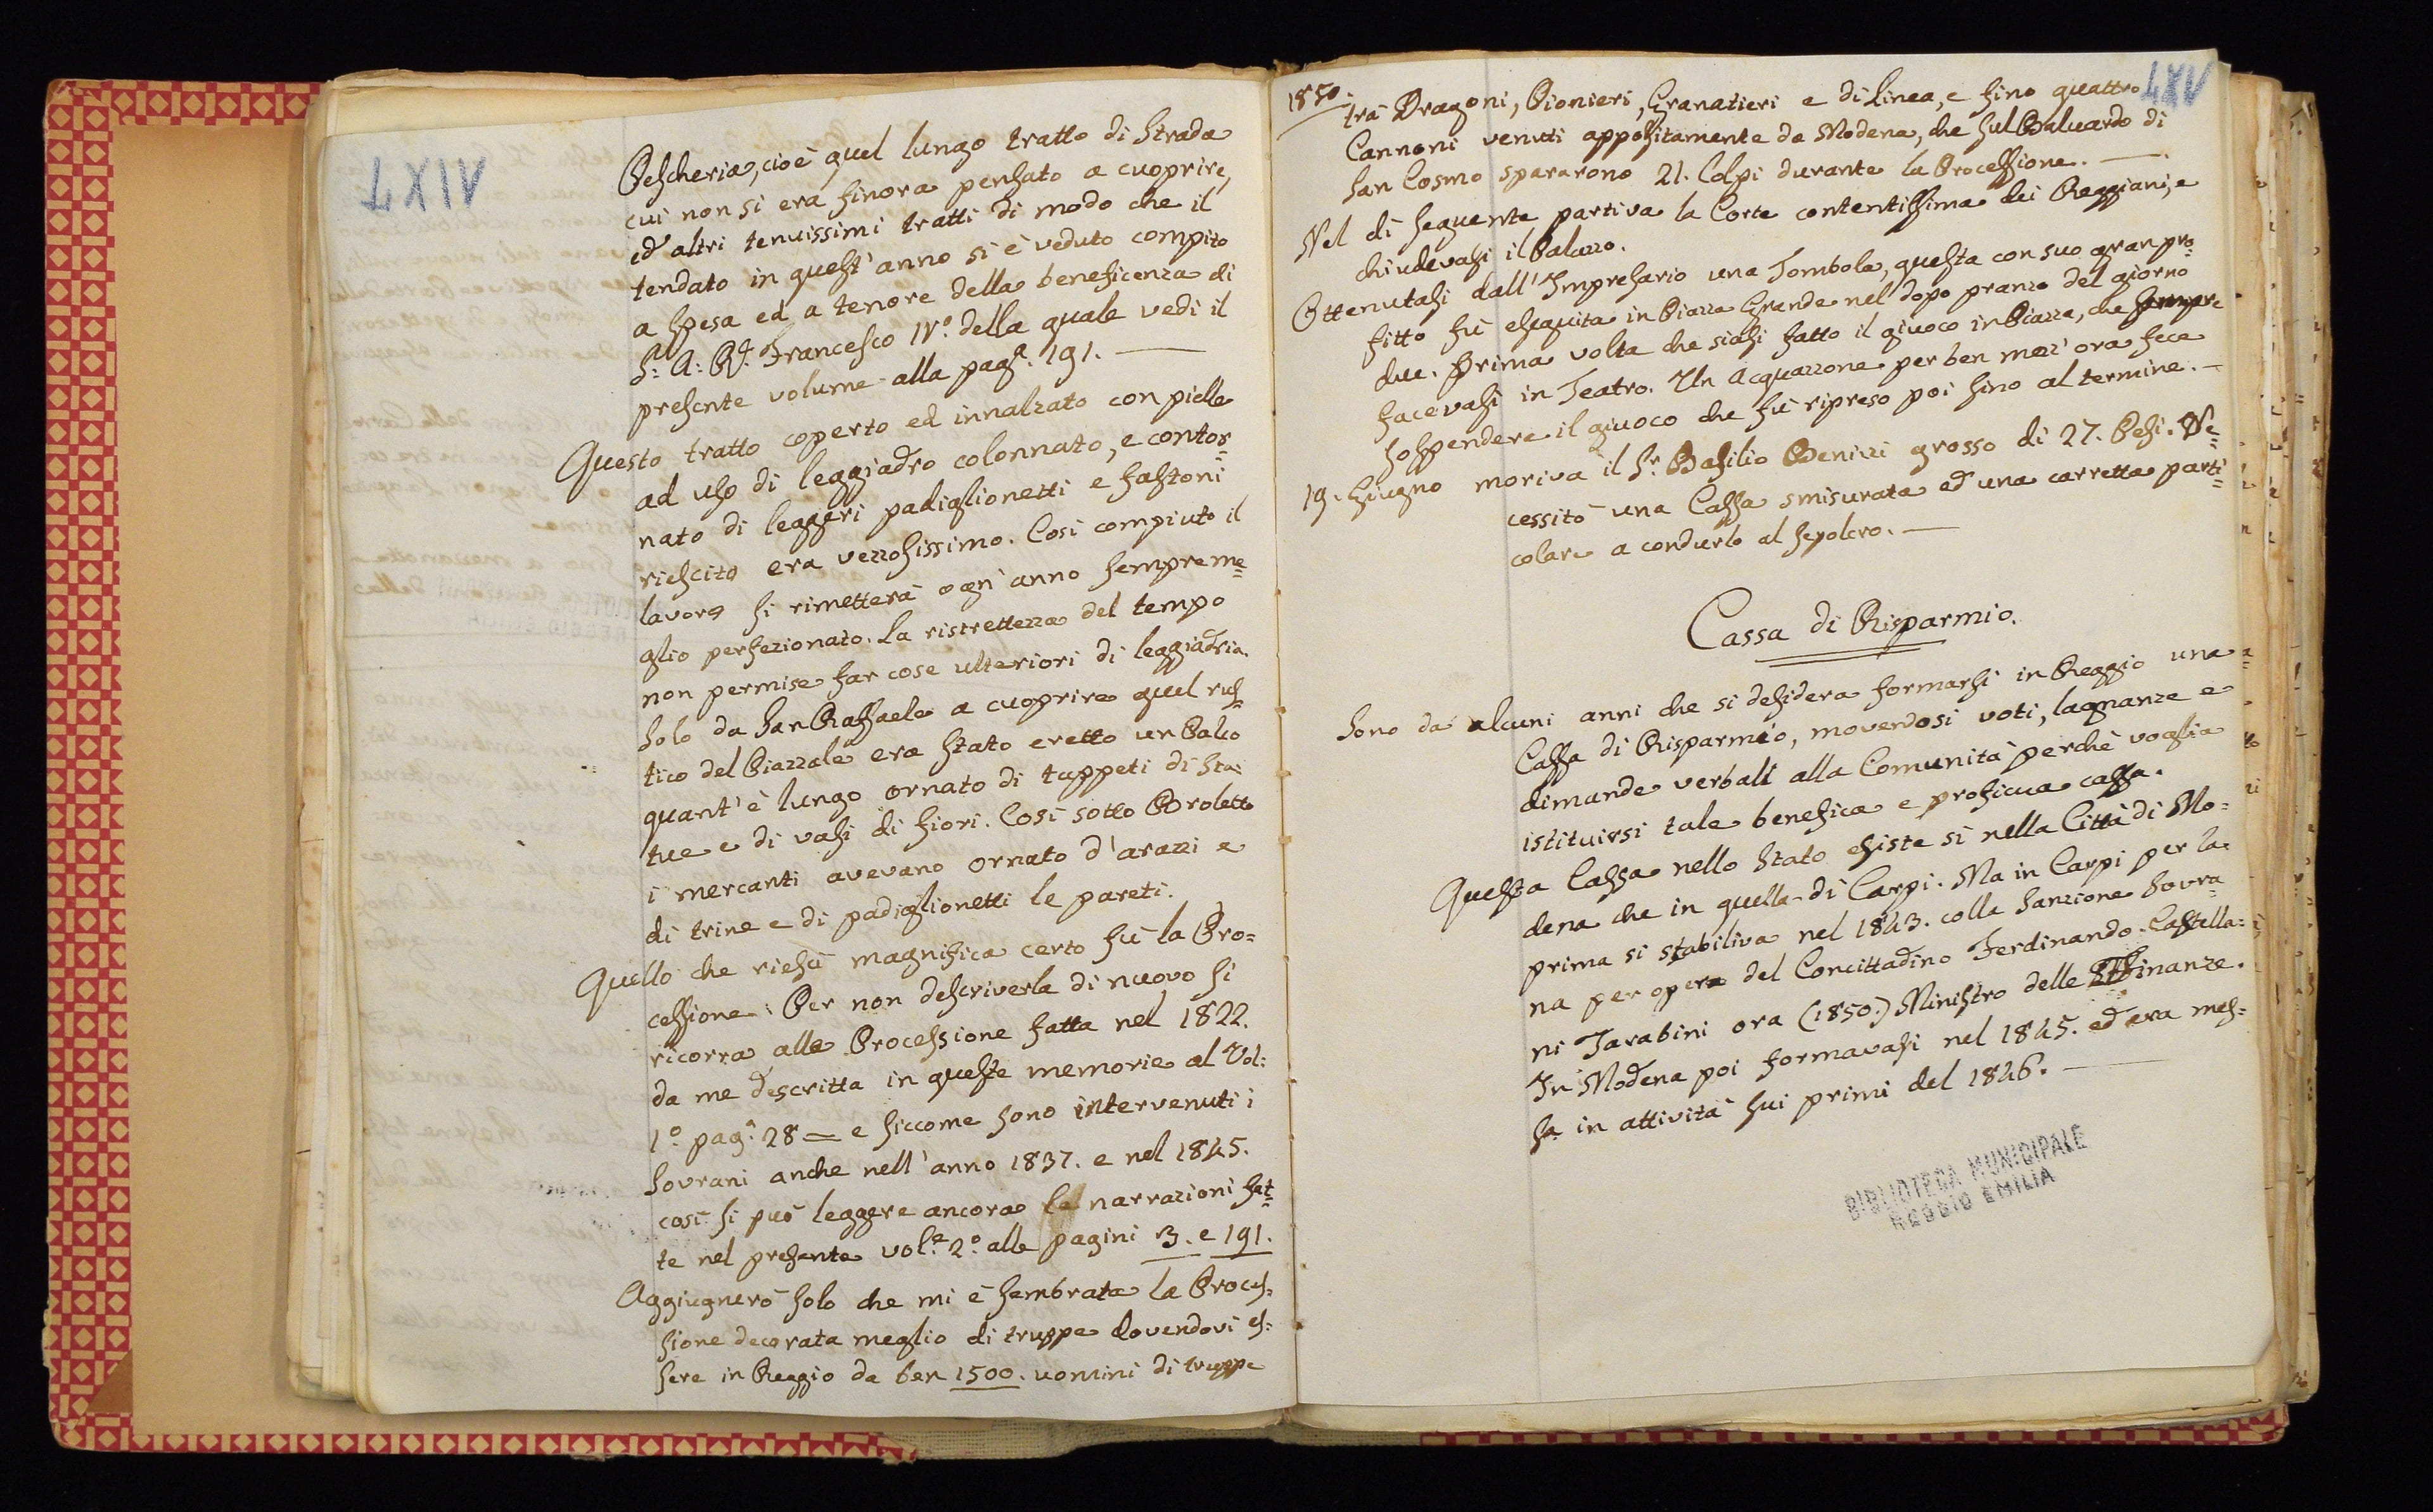 LXIV
Pescheria, cioè quel lungo tratto di Strada
cui non si era finora pensato a cuoprire,
ed altri tenuissimi tratti di modo che il
tendato in quest'anno si è veduto compito
a spesa ed a tenore della beneficenza di
S: A: R: Francesco IV.º della quale vedi il
presente volume alla pag.ª 191. —
Questo tratto coperto ed innalzato con pielle
ad uso di leggiadro colonnato, e contor=
nato di leggeri padiglionetti e fastoni
riescito era vezzosissimo. Così compiuto il
lavoro si rimetterà ogn'anno sempre me=
glio perfezionato. La ristrettezza del tempo
non permise far cose ulteriori di leggiadria.
Solo da San Raffaele a cuoprire quel rus=
tico del Piazzale era stato eretto un Palco
quant'è lungo ornato di tappeti di sta=
tue e di vasi di fiori. Così sotto Broletto
i mercanti avevano ornato d'arazzi e
di trine e di padiglionetti le pareti.
Quello che riescì magnifica certo fù la Pro=
cessione. Per non descriverla di nuovo si
ricorra alla Processione fatta nel 1822.
da me descritta in queste memorie al Vol:
1.º pag.ª 28 = e siccome sono intervenuti i
Sovrani anche nell'anno 1837. e nel 1845.
così si può leggere ancora le narrazioni fat=
te nel presente vol.e 2.º alle pagini 3. e 191.
Aggiugnerò solo che mi è sembrata la Proces=
sione decorata meglio di truppe dovendovi es=
sere in Reggio da ben 1500. uomini di truppe
1850.
LXV
trà Dragoni, Pionieri, Granatieri e di Linea, e fino quattro
Cannoni venuti appositamente da Modena, che sul Baluardo di
San Cosmo spararono 21. Colpi durante la Processione. —
Nel dì seguente partiva la Corte contentissima dei Reggiani, e
chiudevasi il Palazzo.
Ottenutasi dall'Impresario una Tombola, questa con suo gran pro=
fitto fù eseguita in Piazza Grande nel dopo pranzo del giorno
due. Prima volta che siasi fatto il giuoco in Piazza, che sempre
facevasi in Teatro. Un Acquazzone per ben mezz'ora fece
sospendere il giuoco che fù ripreso poi fino al termine. —
19. Giugno moriva il S.r Basilio Benizzi grosso di 27. Pesi. Ne=
cessitò una Cassa smisurata ed una carretta parti=
colare a condurlo al sepolcro. —
Cassa di Risparmio.
Sono da alcuni anni che si desidera formarsi in Reggio una
Cassa di Risparmio, movendosi voti, lagnanze e
dimande verbali alla Comunità perchè voglia
istituirsi tale benefica e proficua cassa.
Questa Cassa nello Stato esiste sì nella Città di Mo=
dena che in quella di Carpi. Ma in Carpi per la
prima si stabiliva nel 1843. colla Sanzione Sovra=
na per opera del Concittadino Ferdinando Castella=
ni Tarabini ora (1850.) Ministro delle Finanze.
In Modena poi formavasi nel 1845. ed era mes=
sa in attività sui primi del 1846. —
BIBLIOTECA MUNICIPALE
REGGIO EMILIA